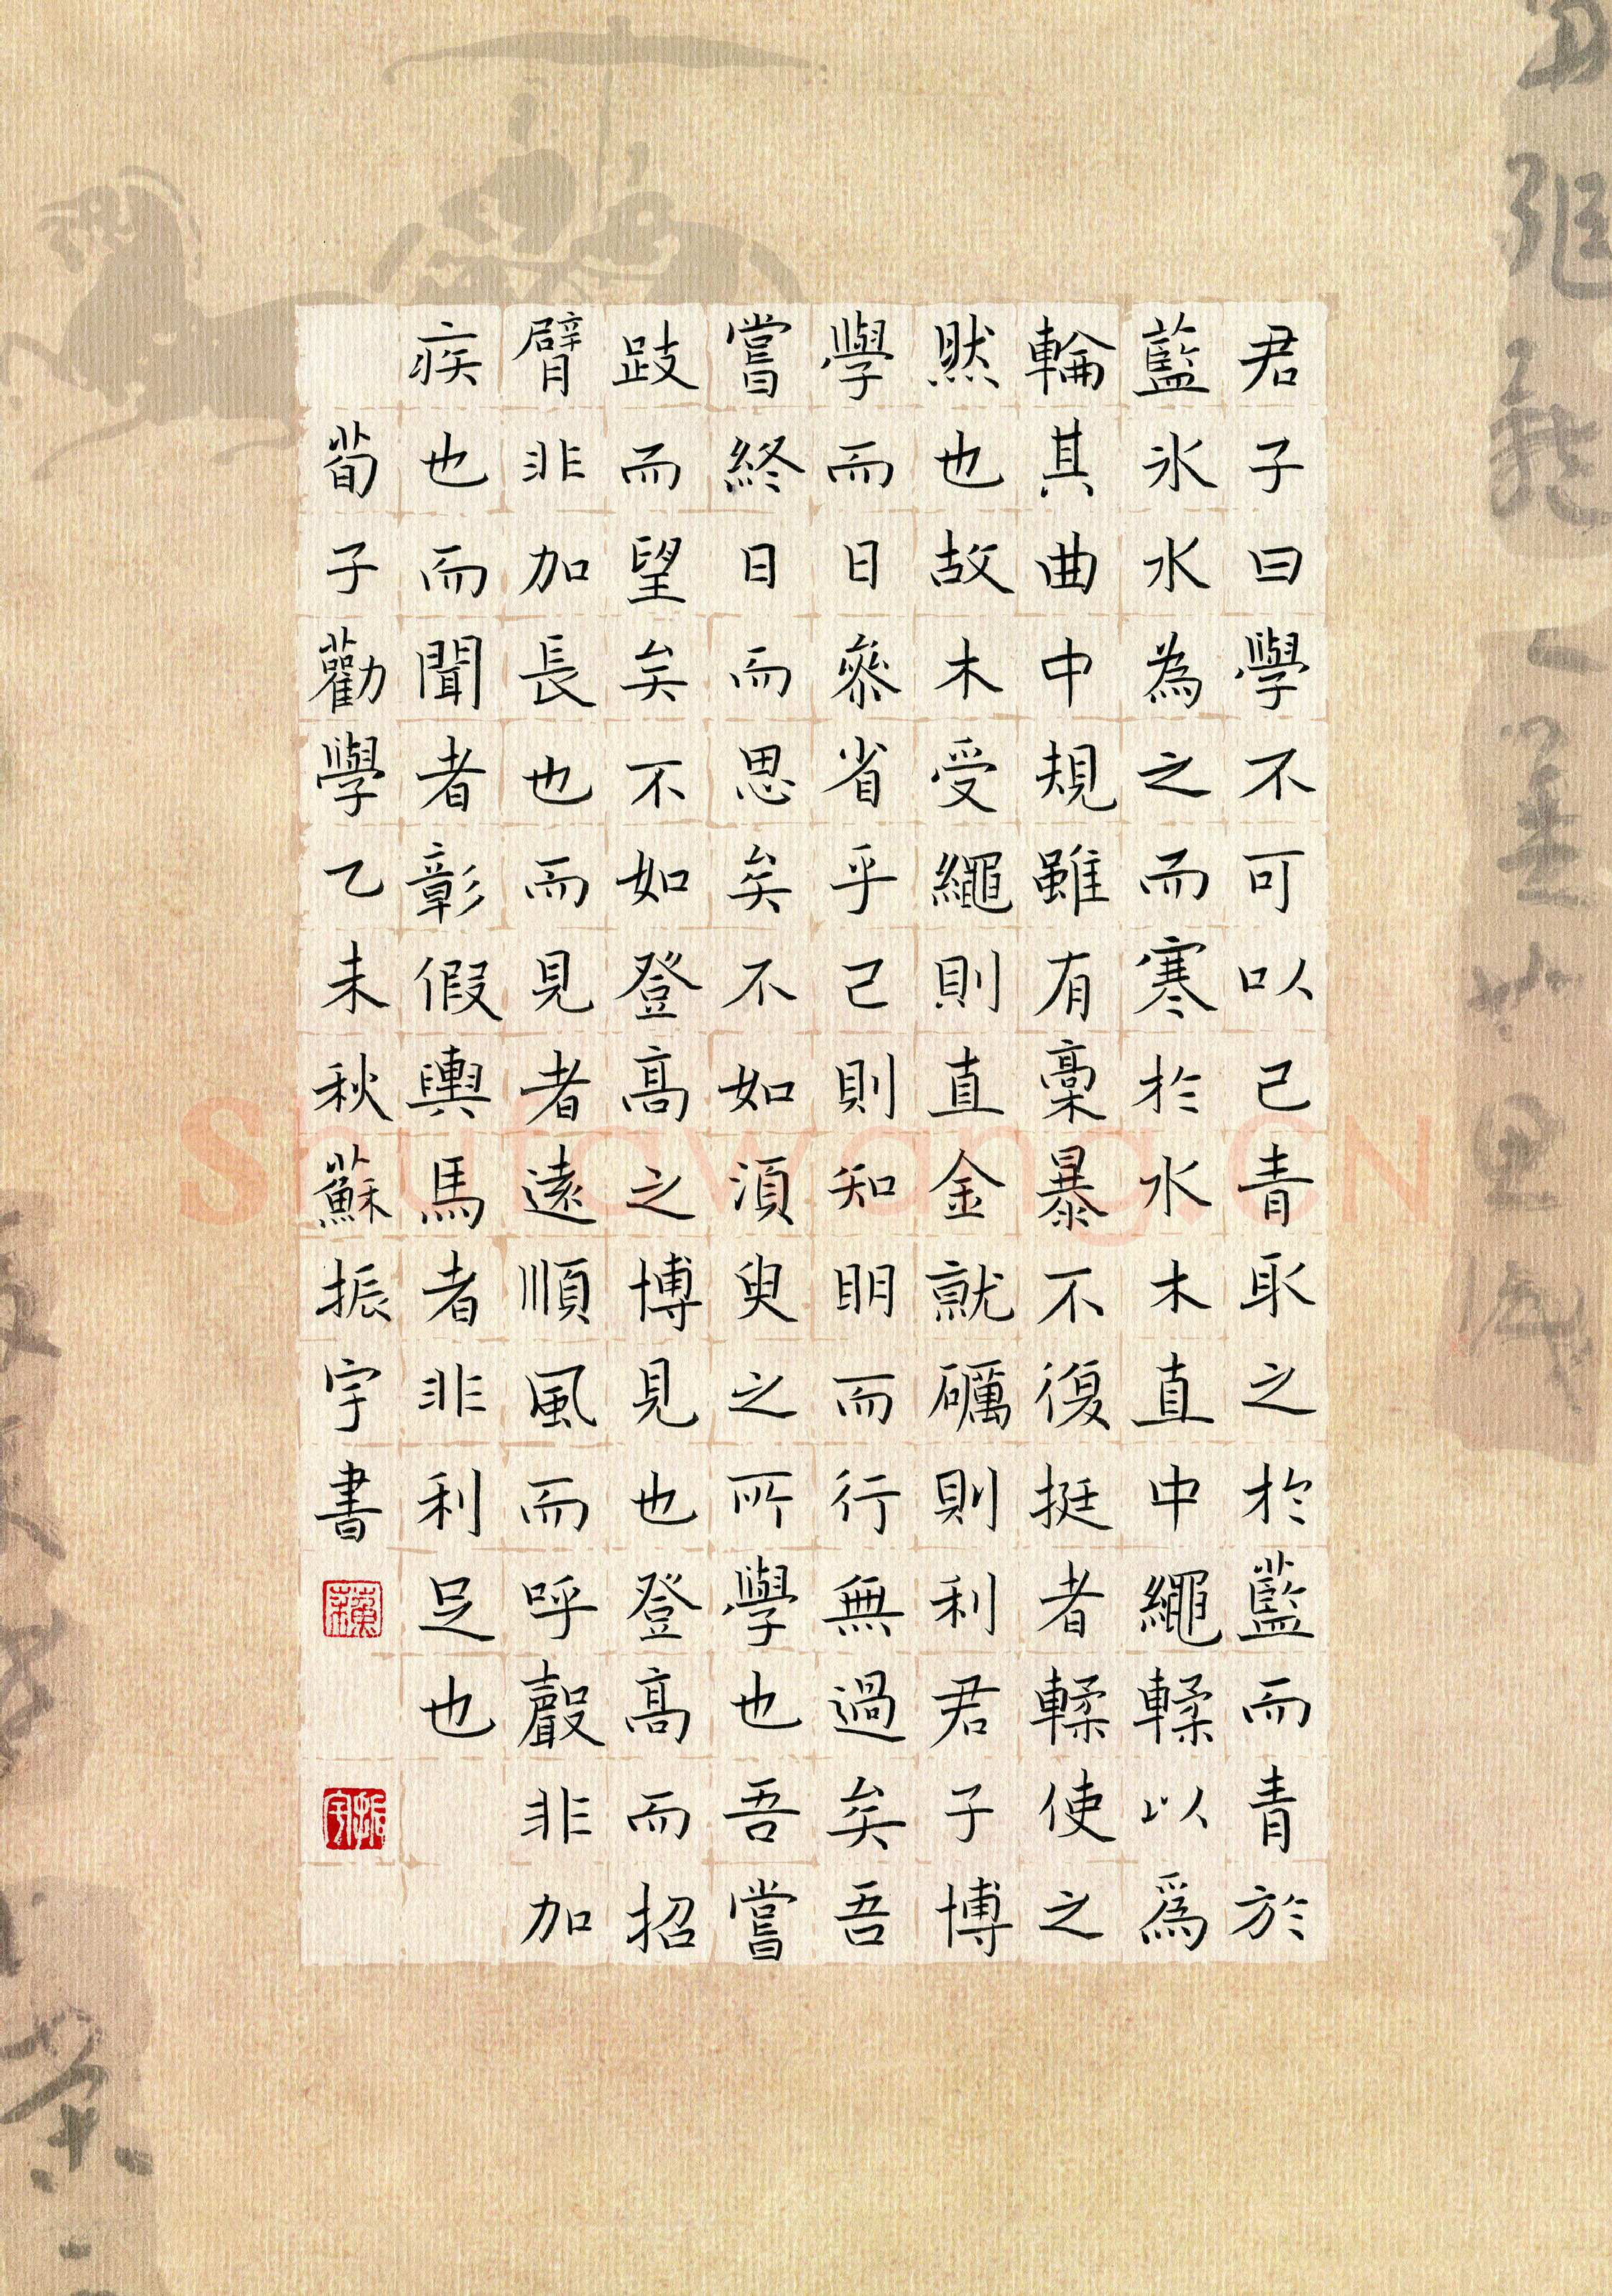 君子曰學不可以已青取之於藍而青於
藍氷水為之而寒於水木直中繩輮以爲
輪其曲中規雖有槀暴不復挺者輮使之
然也故木受繩則直金就礪則利君子博
學而日叅省乎己則知明而行無過矣吾
嘗終日而思矣不如須臾之所學也吾嘗
跂而望矣不如登高之博見也登高而招
臂非加長也而見者遠順風而呼聲非加
疾也而聞者彰假輿馬者非利足也
荀子勸學乙未秋蘇振宇書
振宇
shufawang.cn